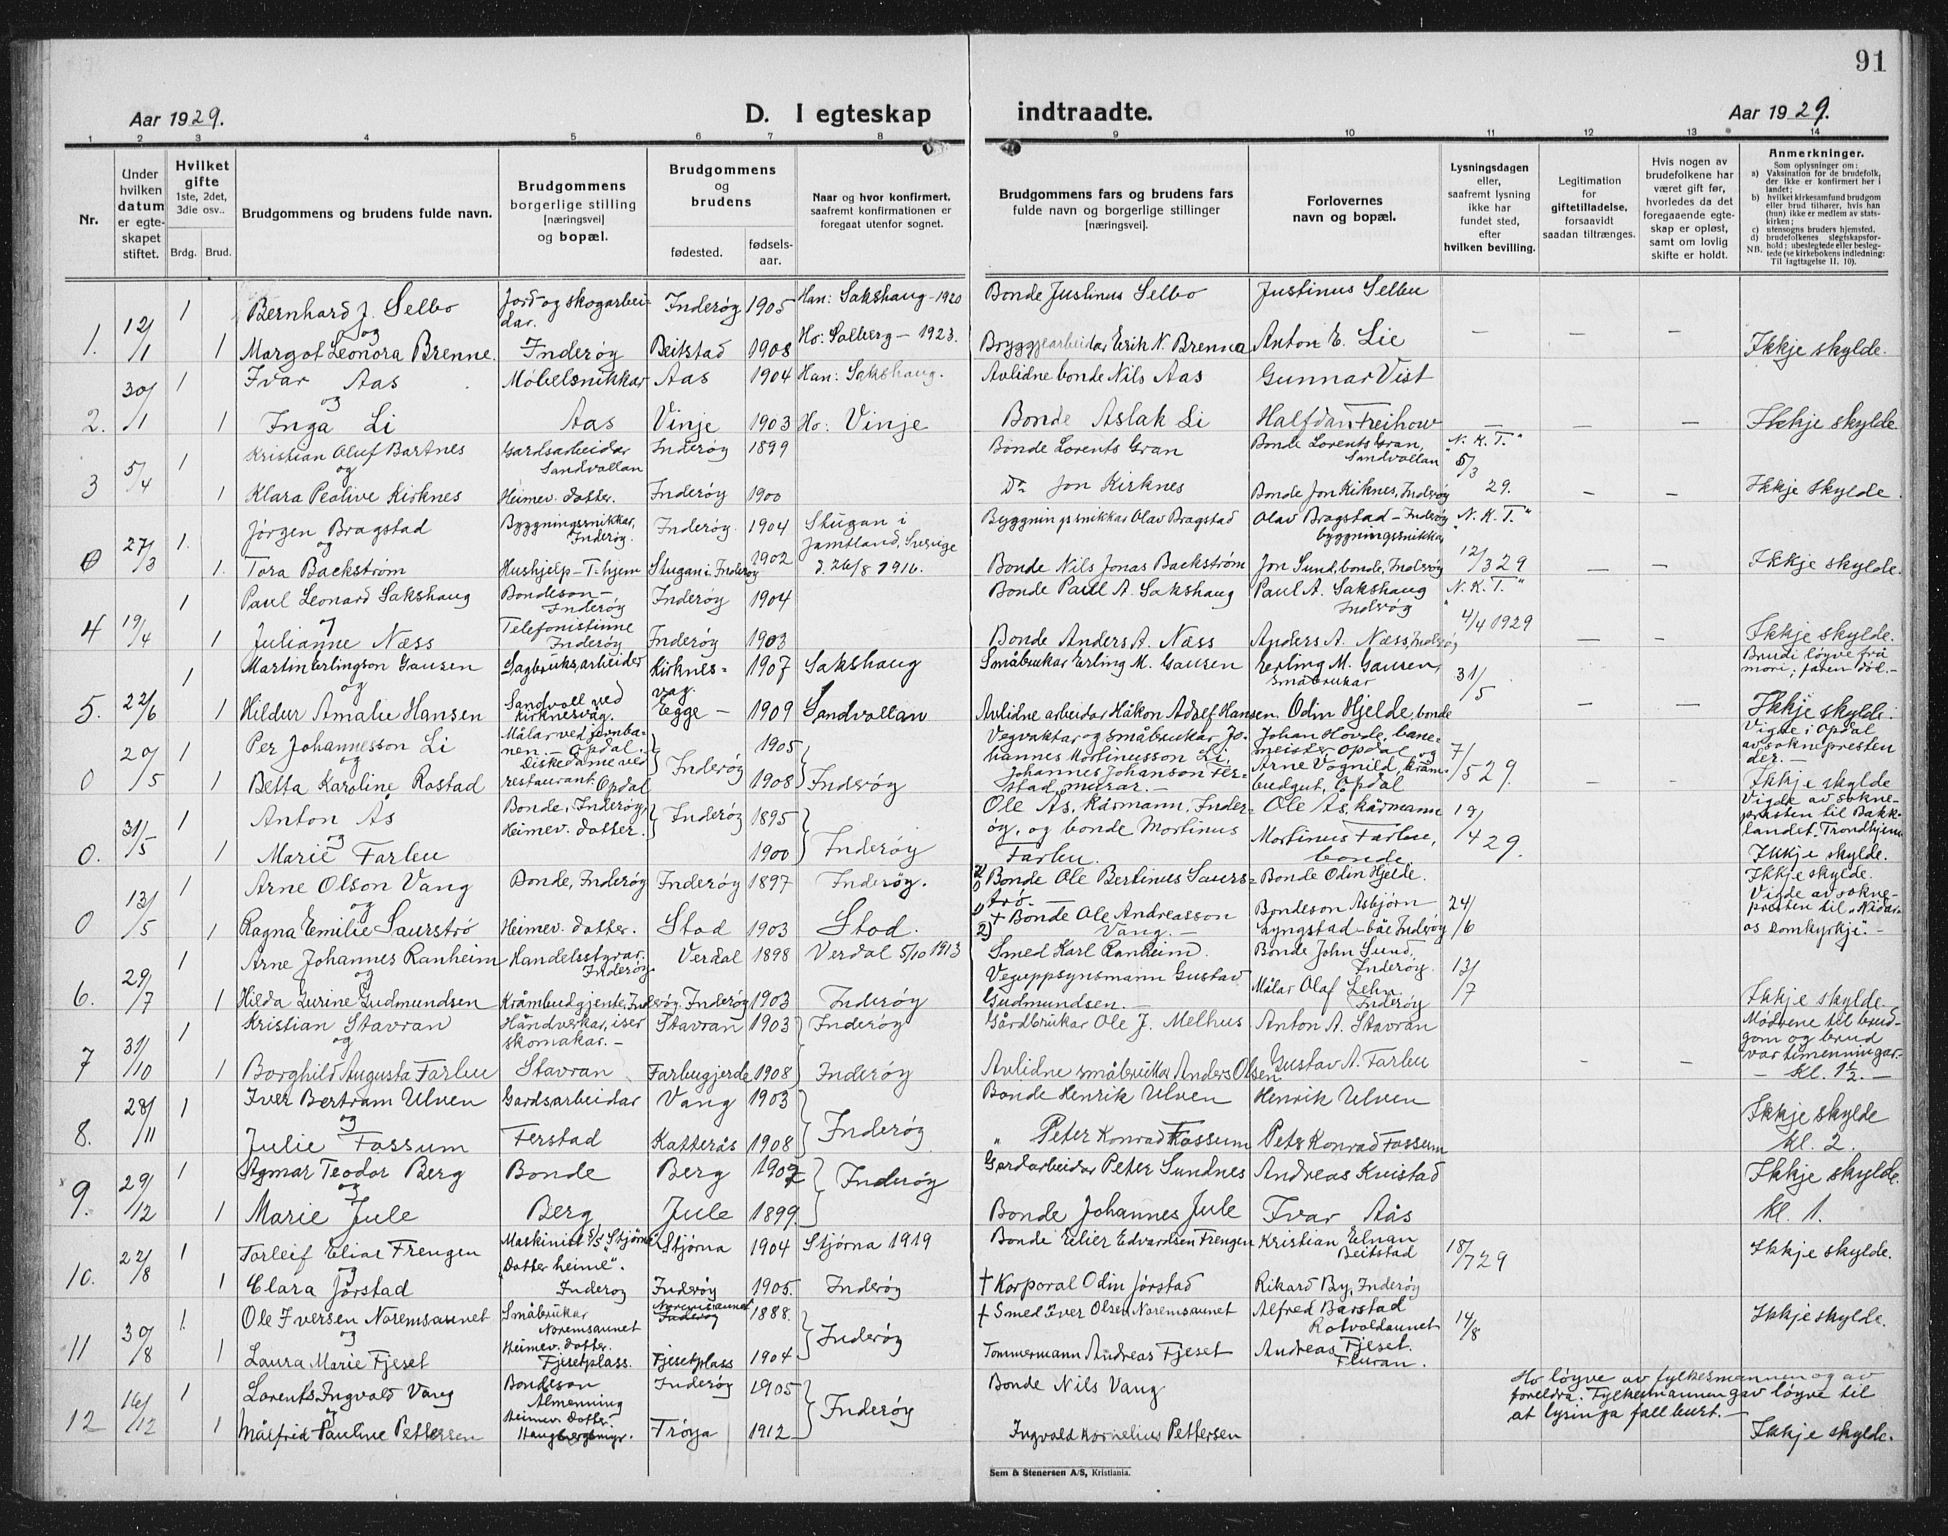 91
Aar 1929.
D. I egteskap
indtraadte.
Aar 1929.
1 2 3 4 5 6 7 8 9 10 11 12 13 14
Nr.
Under hvilken datum er egteskapet stiftet.
Hvilket gifte 1ste, 2det, 3die osv..
Brdg. Brud.
Brudgommens og brudens fulde navn.
Brudgommens borgerlige stilling [næringsvei] og bopæl.
Brudgommens og brudens
fødested.
fødselsaar.
Naar og hvor konfirmert, saafremt konfirmationen er foregaat utenfor sognet.
Brudgommens fars og brudens fars fulde navn og borgerlige stillinger [næringsvei].
Forlovernes navn og bopæl.
Lysningsdagen eller, saafremt lysning ikke har fundet sted, efter hvilken bevilling.
Legitimation for giftetilladelse, forsaavidt saadan tiltrænges.
Hvis nogen av brudefolkene har været gift før, hvorledes da det foregaaende egteskap er opløst, samt om lovlig skifte er holdt.
Anmerkninger.
Som oplysninger om:
a) Vaksination før de brudefolk, der ikke er konfirmert her i landet;
b) hvilket kirkesamfund brudgom eller brud tilhører, hvis han (hun) ikke er medlem av statskirken;
c) utensogns bruders hjemsted.
d) brudefolkenes slegtskapsforhold: ubeslegtede eller beslegtede (se kirkebokens indledning: NB. Til iagttagelse II. 10).
1. 12/1 1 Bernhard J. Selbo Jord og skogarbeidar. Inderøy 1905 Han: Sakshaug - 1920 Bonde Justinus Selbo Justinus Selbu
og
1 Margot Leonora Brenne. Inderøy Beitstad 1908 Ho: Salberg - 1923. Bryggjearbeidar Erik N. Brenna Anton E. Lie — — — Ikkje skylde.
2. 30/1 1 Ivar Aas Møbelsnikkar Aas 1904 Han: Sakshaug. Avlidne bonde Nils Aas Gunnar Vist
og
1 Inga Li Aas Vinje 1903 Ho: Vinje Bonde Aslak Li Halfdan Freihow — — — Ikkje skylde
3 5/4 1 Kristian Oluf Bartnes Gardsarbeidar Sandvollan Inderøy 1899 Bonde Lorents Gran Bonde Lorents Gran, Sandvollan "N. K. T." 5/3 29.
og
1 Klara Peolive Kirknes Heimev. dotter. Inderøy 1900 Do Jon Kirknes Bonde Jon Kirknes, Inderøy — — Ikkje skylde.
0 27/3 1. Jørgen Bragstad Byggningssnikkar, Inderøy. Inderøy. 1904 Stugan i Jamtland, Sverige Byggningssnikkar Olav Bragstad Olav Bragstad - Inderøy byggningssnikkar "N. K. T." 12/3 29
og
1. Tora Backstrøm Hushjelp - T-hjem Stugan i Inderøy 1902 d. 26/8 1916. Bonde Nils Jonas Backstrøm Jon Sund, bonde, Inderøy — — Ikkje skylde.
4 19/4 1 Paul Leonard Sakshaug Bondeson - Inderøy Inderøy 1904 Bonde Paul A. Sakshaug Paul A. Sakshaug Inderøy "N. K. T." 4/4 1929
og
1 Julianne Næss Telefonistinne Inderøy Inderøy 1903 Bonde Anders A. Næss Anders A. Næss, Inderøy — — Ikkje skylde.
5. 22/6 1 Martin Erlingson Gausen Sagbruksarbeider Kirknesvåg. 1907 Sakshaug Småbrukar Erling M. Gausen Erling M. Gausen, småbrukar 31/5 Brudi løyve frå mori; faren død. -
og
1 Hildur Amalie Hansen Sandvoll ved Kirknesvåg. Egge - 1909 Sandvollan Avlidne arbeidar Håkon Adolf Hansen. Odin Hjelde, bonde — — Ikkje skylde.
0 20/5 1 Per Johannesson Li Målar ved jernbanen. - Opdal. Inderøy 1905 Inderøy Vegvaktar og småbrukar Johannes Mortinusson Li, Johan Hovde, banemeister, Opdal og 7/5 29. Vigde i Opdal av soknepresten der. -
og
1 Betta Karoline Rostad Diskedame ved restaurant. Opdal 1908 Johannes Johanson Ferstad, murar. - Arne Vognild, krambudgut, Opdal — — Ikkje skylde
0. 31/5 1 Anton Ås Bonde, Inderøy Inderøy 1895 Inderøy Ole Ås, kårmann, Inderøy, og bonde Mortinus Farbu. Ole Ås, kårmann 19/4 29. Vigde av soknepresten til Bakklandet, Trondhjem
og
1 Marie Farbu Heimev. dotter. 1900 Mortinus Farbu, bonde Ikkje skylde.
0 13/5 1 Arne Olson Vang Bonde, Inderøy Inderøy 1897 Inderøy. Bonde Ole Bertinus Saurstrø. - Bonde Odin Hjelde. 24/6 Ikkje skylde.
og
1 Ragna Emilie Saurstrø Heimev. dotter. Stod 1903 Stod. + Bonde Ole Andreasson Vang. - Bondeson Asbjørn Lyngstad - båe Inderøy Vigde av soknepresten til "Nidaros Domkyrkje". -
6. 29/7 1 Arne Johannes Ranheim Handelsstyrar. Inderøy Verdal 1898 Verdal 5/10 1913 Smed Karl Ranheim. Bonde John Sund, Inderøy. 13/7
og
1 Hilda Jurine Gudmundsen Kråmbudgjente, Inderøy. Inderøy 1903 Inderøy Veguppsynsmann Gustav Gudmundsen. - Målar Olaf Lehn, Inderøy Ikkje skylde
7 31/10 1 Kristian Stavran Håndverkar, iser skomakar. - Stavran 1903 Inderøy Gårdbrukar Ole J. Melhus Anton A. Stavran Mødrene til brudgom og brud var timenningar. -
og
1 Borghild Augusta Farbu Stavran Farbugjerde 1908 Inderøy Avlidne småbrukar Anders Olsen. Gustav A. Farbu — — — kl. 1½. —
8. 28/11 1 Iver Bertram Ulven Gardsarbeidar Vang 1903 Inderøy Bonde Henrik Ulven Henrik Ulven Ikkje skylde
og
1 Julie Fossum Ferstad Katterås 1908 " Peter Konrad Fossum Peter Konrad Fossum kl. 2
9. 29/12 1 Agmar Teodor Berg Bonde Berg 1902 Inderøy Gardarbeidar Peter Sundnes Andreas Kvistad Ikkje skylde.
og
1 Marie Jule Berg Jule 1899 Bonde Johannes Jule Ivar Aås kl. 1.
10. 22/8 1 Torleif Eliar Frengen Maskinist s/s Stjørna Stjørna 1904 Stjørna 1919 Bonde Elier Edvardsen Frengen Kristian Elnan Beitstad 18/7 29 Ikkje skylde.
og
1 Clara Jørstad "Dotter heime". Inderøy Inderøy 1905. Inderøy + Korporal Odin Jørstad Rikard By, Inderøy
11 30/8 1. Ole Iversen Noremsaunet Småbrukar Noremsaunet Noremsaunet Inderøy 1888. Inderøy + Smed Iver Olsen Noremsaunet Alfred Barstad Rotvoldaunet 14/8 Ikkje skylde.
og
1 Laura Marie Fjeset Heimev. dotter. Fjesetplass. Fjesetplass 1904 Tømmermann Andreas Fjeset Andreas Fjeset. Fluran.
12 16/12 1 Lorents Ingvald Vang Bondeson Almenning Inderøy 1905 Inderøy Bonde Nils Vang Ho løyve av fylkesmannen og av foreldra. Fylkesmannen gav løyve til at lysinga fall burt. -
og
1 Målfrid Pauline Pettersen Heimev. dotter. Haugbergsmyr. Trøja 1912 Ingvald Kornelius Pettersen Ikkje skylde.
Sem & Stenersen A/S, Kristiania.